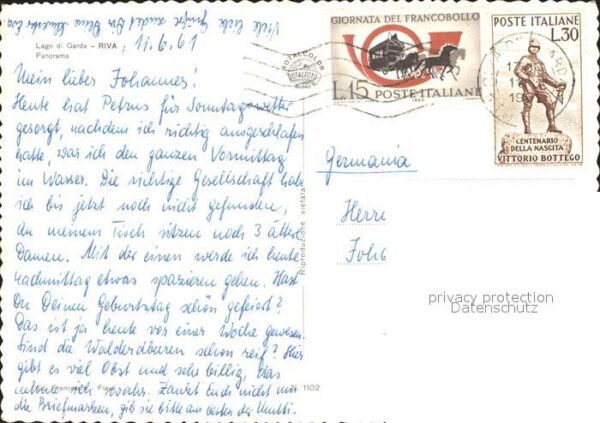 Viele liebe Grüße sendet Dir Deine Schwester Eva
Lago di Garda - RIVA
Panorama
11.6.61
Mein lieber Johannes!
Heute hat Petrus für Sonntagswetter
gesorgt, nachdem ich richtig ausgeschlafen
hatte, war ich den ganzen Vormittag
im Wasser. Die richtige Gesellschaft hab
ich bis jetzt noch nicht gefunden,
an meinem Tisch sitzen noch 3 ältere
Damen. Mit der einen werde ich heute
nachmittag etwas spazieren gehen. Hast
Du Deinen Geburtstag schön gefeiert?
Das ist ja heute vor einer Woche gewesen.
Sind die Walderdbeeren schon reif? Hier
gibt es viel Obst und sehr billig, das
nehme ich wahr. Zanket Euch nicht mit
die Briefmarken, gib sie bitte am besten der Mutti.
1102
Riproduzione vietata
ROTALCOLOR
ROTALFOTO
MILANO
GIORNATA DEL FRANCOBOLLO
L.15 POSTE ITALIANE
1960
POSTE ITALIANE
L.30
CENTENARIO
DELLA NASCITA
VITTORIO BOTTEGO
Germania
Herrn
Joh
privacy protection
Datenschutz